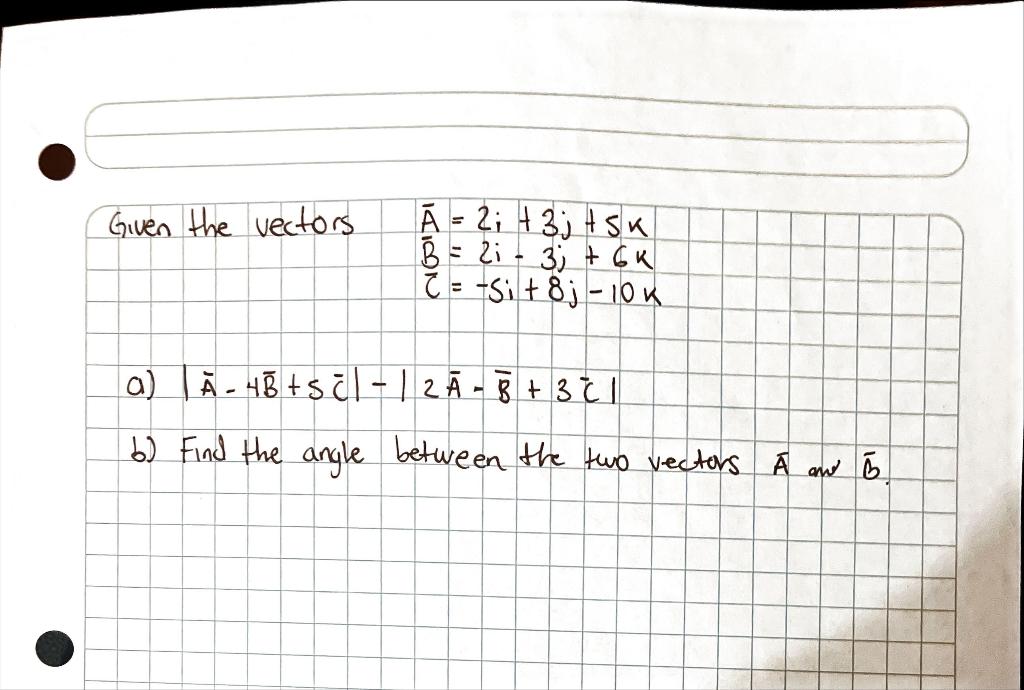 Given the vectors Ā = 2i + 3j + 5k
B̄ = 2i - 3j + 6k
C̄ = -5i + 8j - 10k
a) |Ā - 4B̄ + 5C̄| - |2Ā - B̄ + 3C̄|
b) Find the angle between the two vectors Ā and B̄.